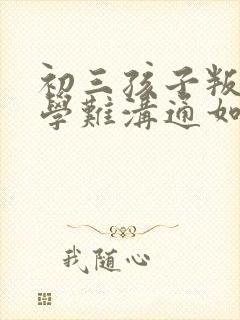 初三孩子叛
學難溝通如
我随心